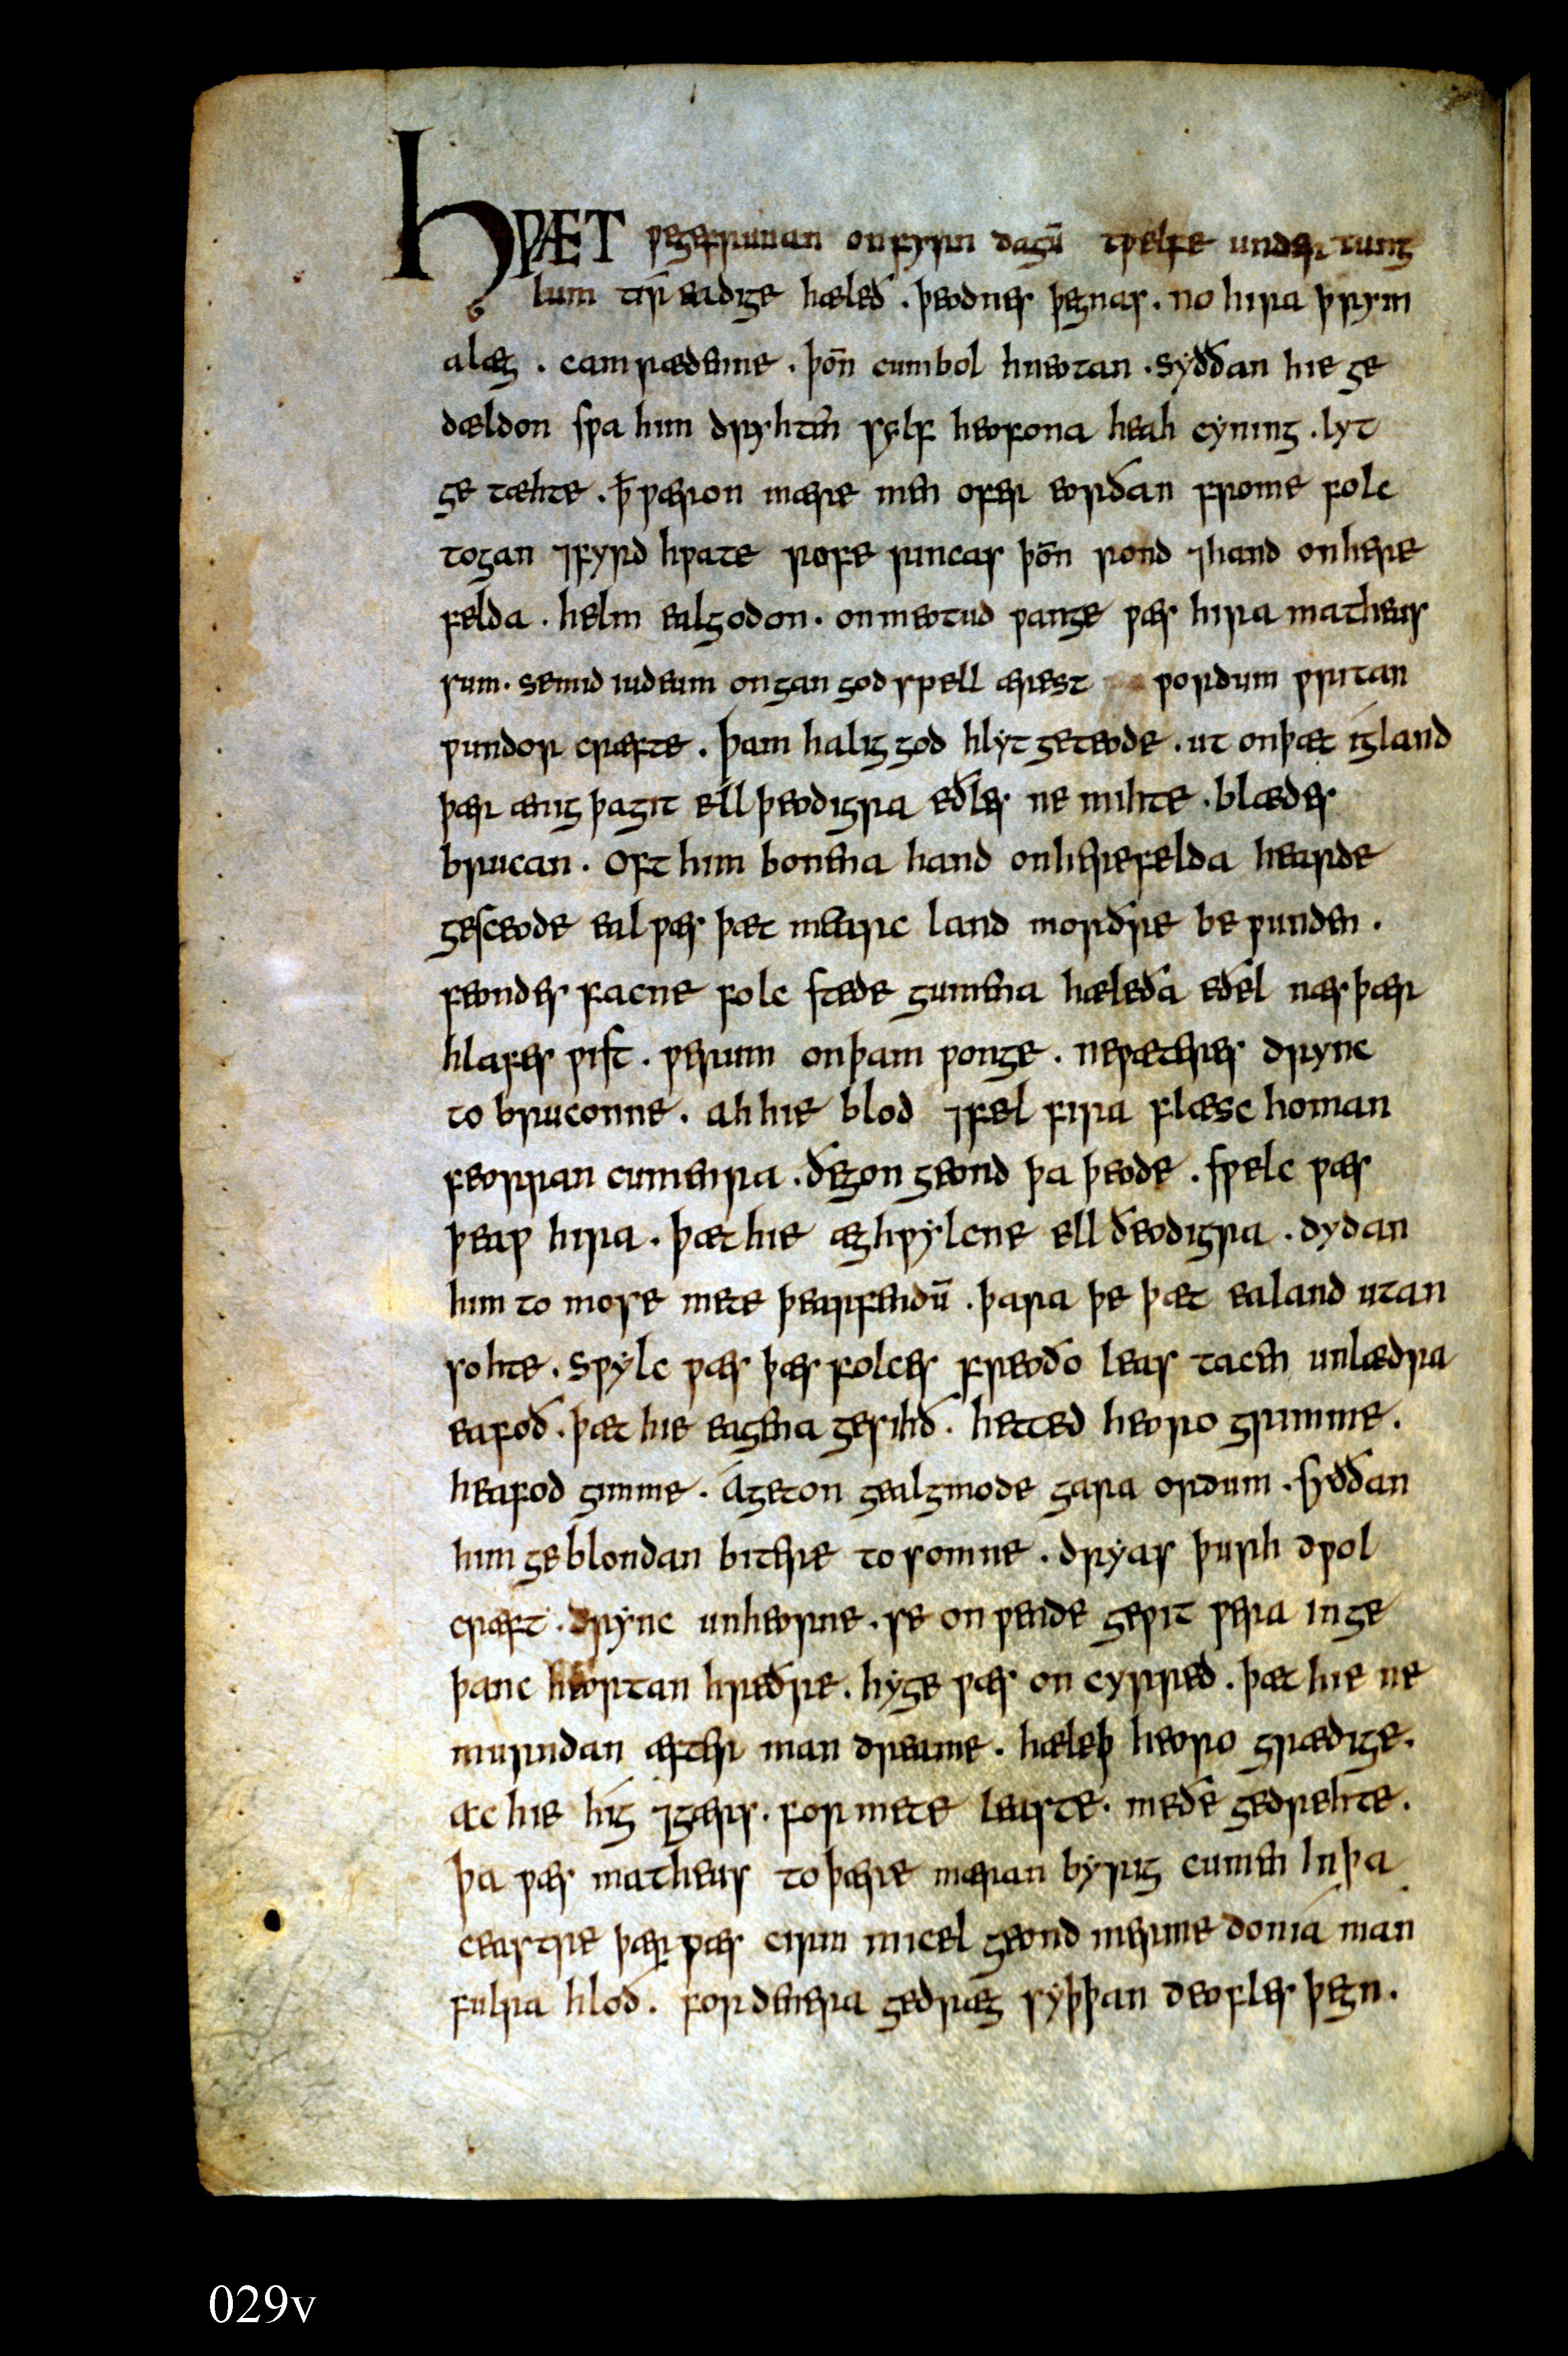 HǷÆT ƿegefrunan onfyrn dagū tƿelfe under tung
lum tir eadige hæleð . þeodnes þegnas . no hira þrym
alæg . camrædenne . þoñ cumbol hneotan . syððan hie ge
dældon sƿa him dryhten sylf heofona heah cyning . lyt
ge tæhte . ꝥ ƿæron mære men ofer eorðan frome folc
togan ⁊fyrd hƿate rofe rincas þoñ rond ⁊hand onhere
felda . helm ealgodon . onmeotud ƿange ƿæs hira matheus
sum . semid iudeum ongan godspell ærest ƿordum ƿritan
ƿundor cræfte . þam halig god hlyt geteode . ut onþæt igland
þær ænig þagit ellþeodigra eðles ne mihte . blædes
brucan . Oft him bonena hand onherefelda hearde
gesceode eal ƿæs þæt mearc land morðre be ƿunden .
feondes facne folc stede gumena hæleða eðel næs þær
hlafes ƿist . ƿerum onþam ƿonge . neƿæteres drync
to bruconne . ah hie blod ⁊fel fira flæsc homan
feorran cumenra . ðegon geond þa þeode . sƿelc ƿæs
þeaƿ hira . þæt hie æghƿylcne ell ðeodigra . dydan
him to mose mete þearfendū . þara þe þæt ealand utan
sohte . sƿylc ƿæs þæs folces freoðo leas tacen unlædra
eafoð . þæt hie eagena gesihð . hetted heoro grimme .
heafod gimme . Ágeton gealgmode gara ordum . syððan
him geblondan bitere tosomne . dryas þurh dƿol
cræft . drync unheorne . se onƿende geƿit ƿera inge
þanc heortan hreðre . hyge ƿæs on cyrred . þæt hie ne
murndan æfter man dreame . hæleþ heoro grædige .
ac hie hig ⁊gærs . for mete leaste . meðe gedrehte .
þa ƿæs matheus to þære mæran byrig cumen Inþa
ceastre þær ƿæs cirm micel geond mermedonia man
fulra hloð . fordenera gedræg syþþan deofles þegn .
029v